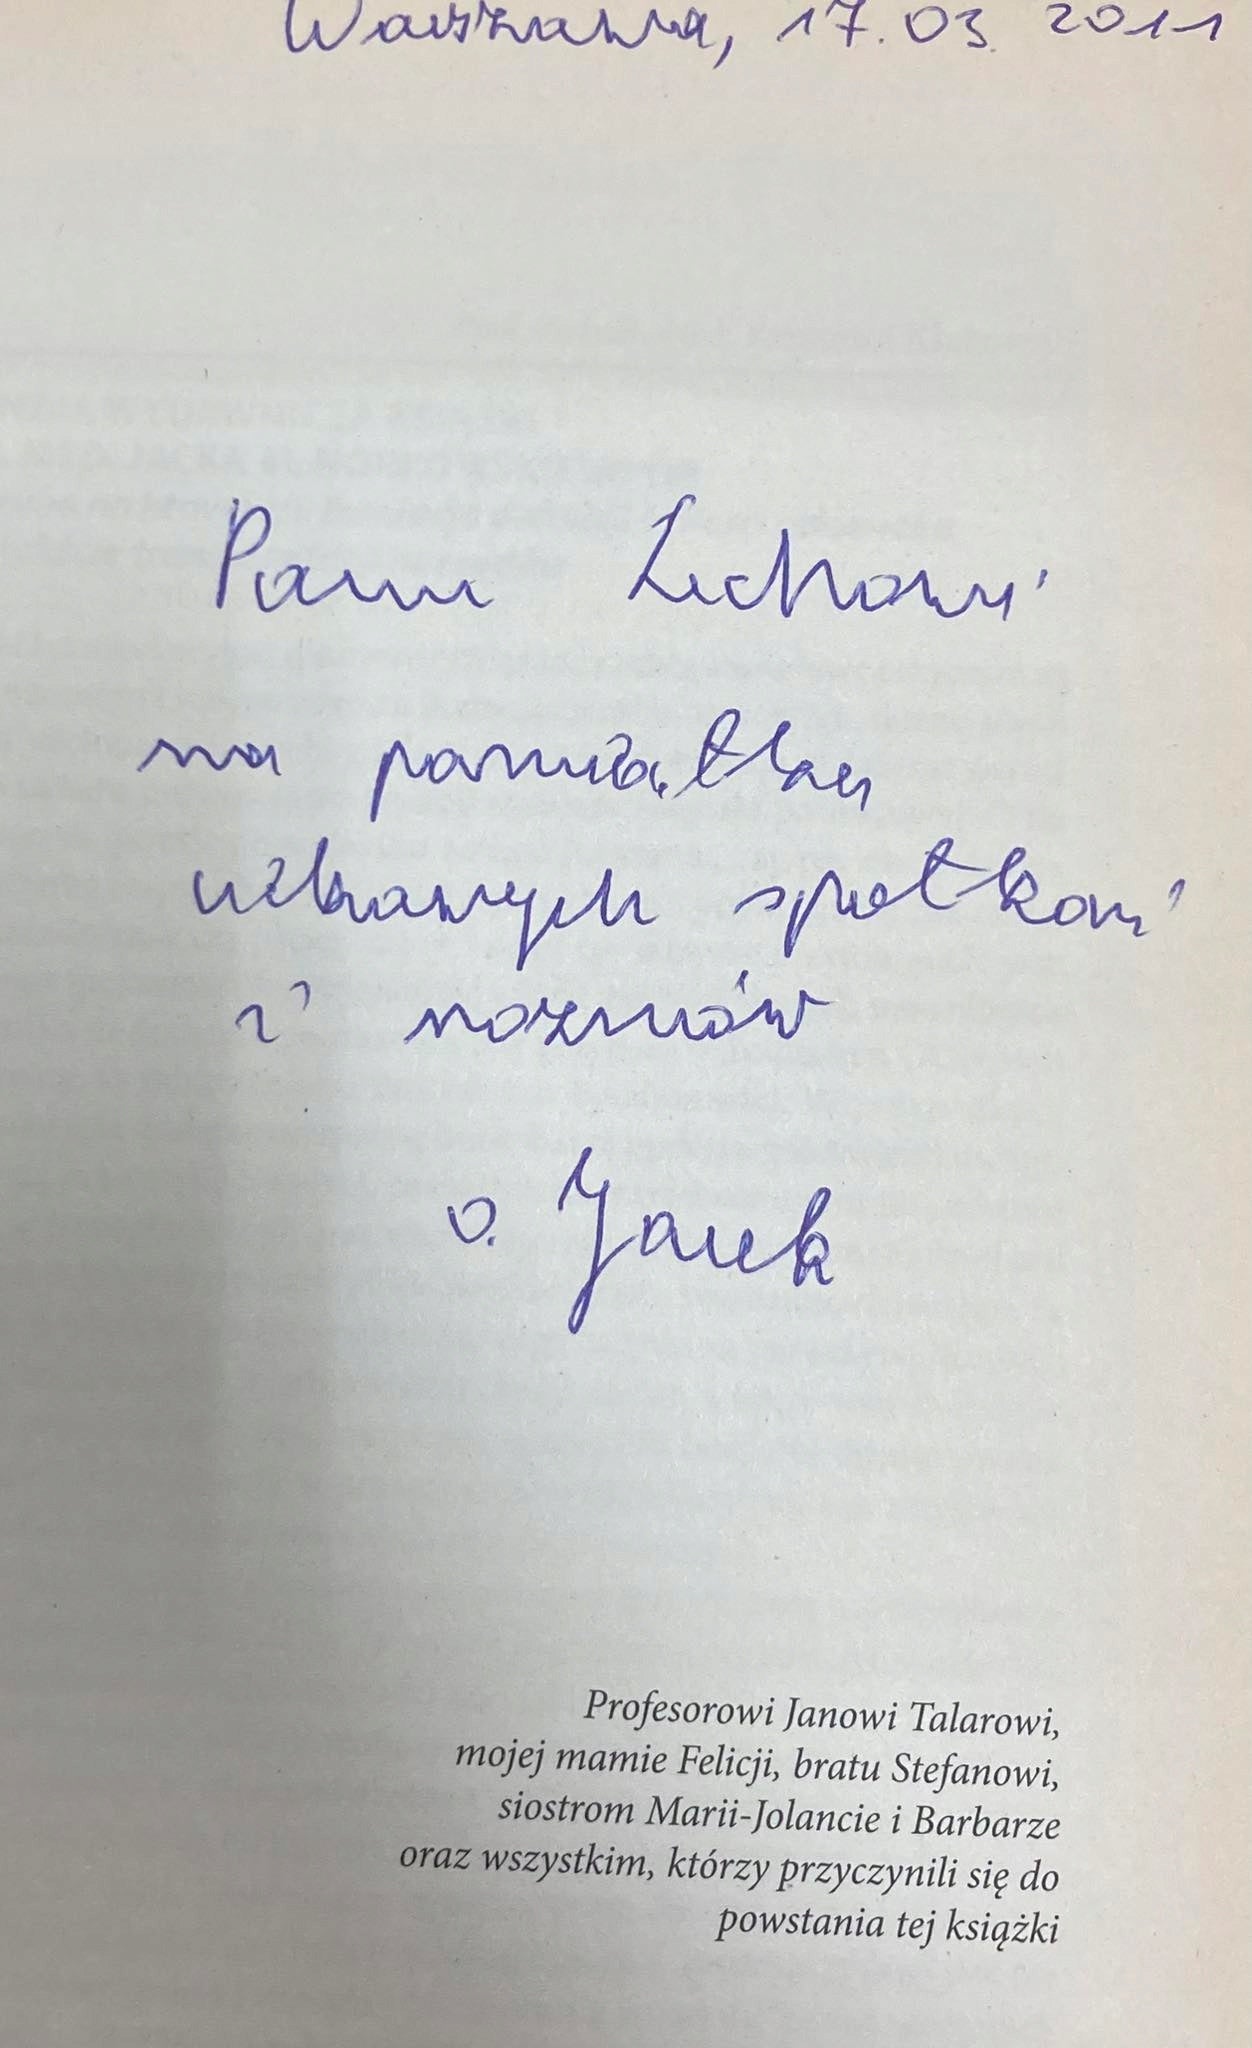 Warszawa, 17.03.2011
Panu Lechowi
na pamiątkę
ciekawych spotkań
i rozmów
o. Jacek
Profesorowi Janowi Talarowi,
mojej mamie Felicji, bratu Stefanowi,
siostrom Marii-Jolancie i Barbarze
oraz wszystkim, którzy przyczynili się do
powstania tej książki